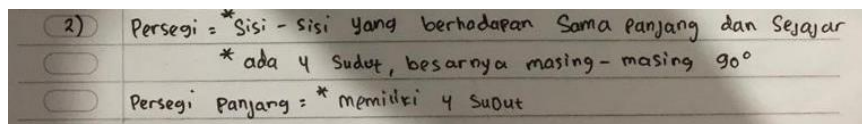 2) Persegi = * Sisi - sisi yang berhadapan Sama Panjang dan Sejajar
* ada 4 Sudut, besarnya masing - masing 90°
Persegi Panjang = * memiliki 4 Sudut